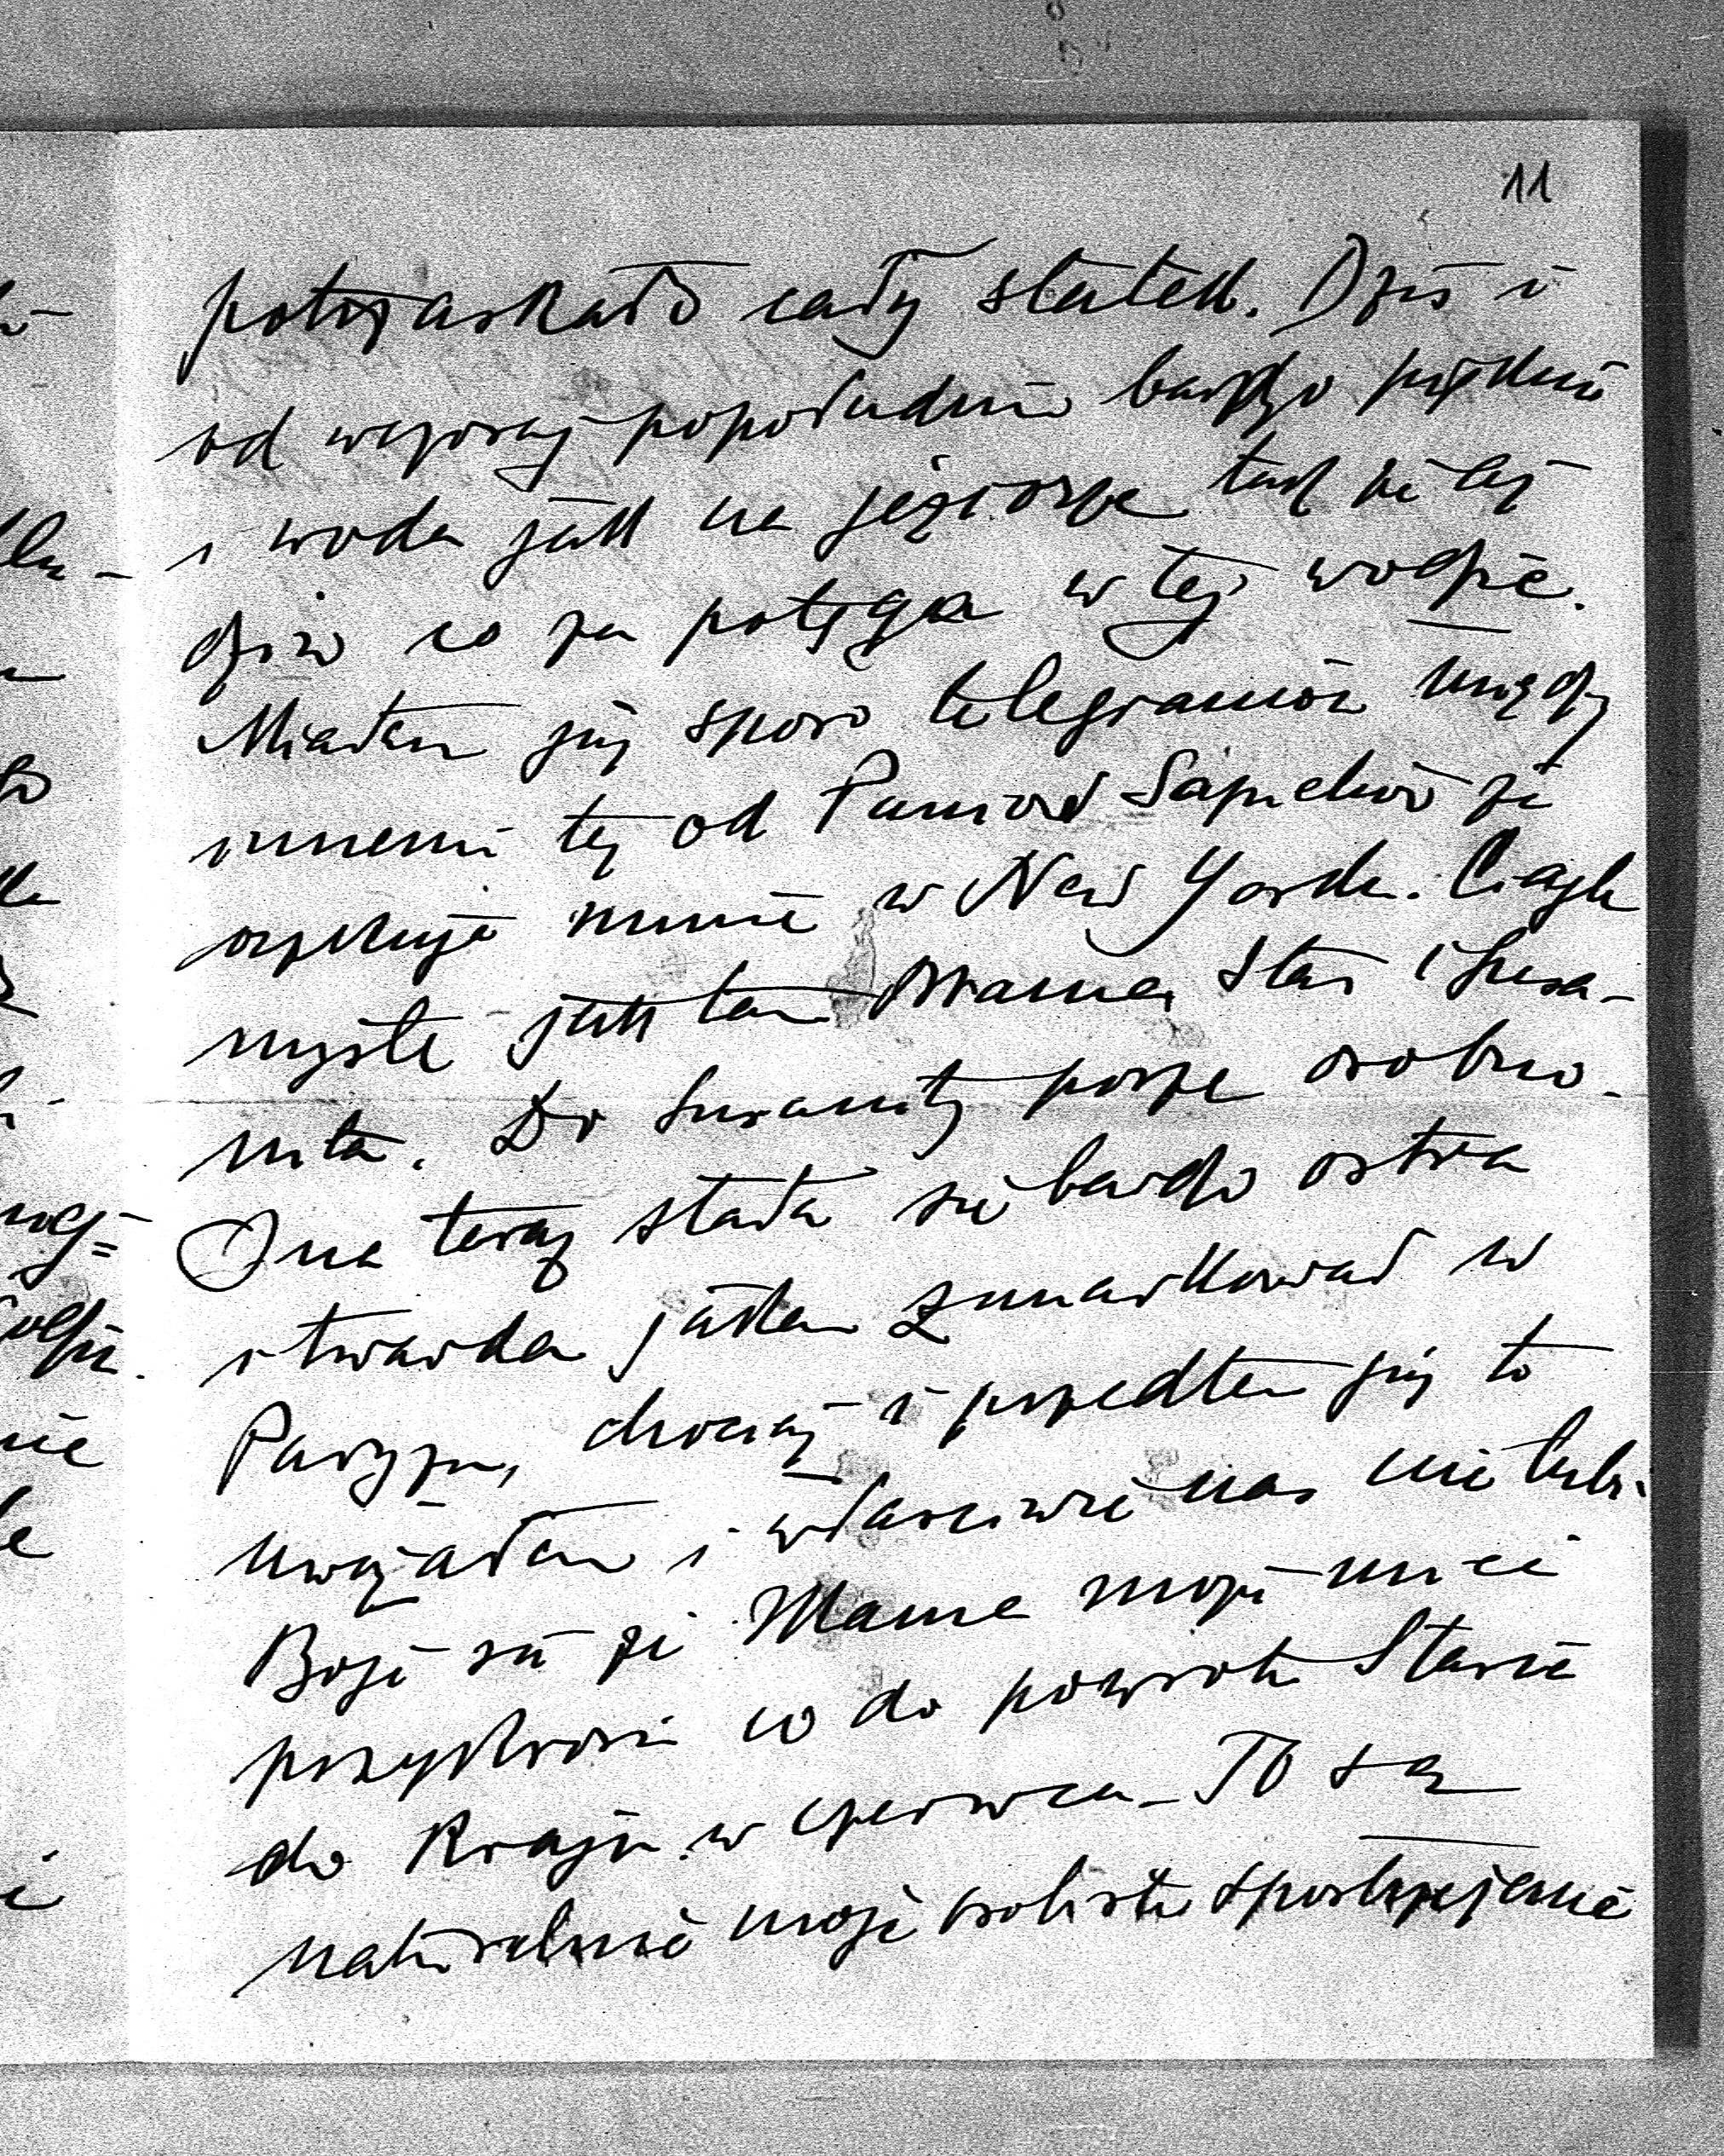 11
potrzaskało cały statek. Dziś i
od wczoraj popołudnia bardzo pięknie
i woda jak na jeziorze tak że
dziw co za potęga w tej wodzie.
Miałam już sporo telegramów między
innemi też od Paniow Sapiehów że
oczekują mnie w New Yorku. Ciągle
myślę jak tam Mama, Staś i Susa-
nita. Do Susanity piszę osobno.
Ona teraz stała się bardzo ostra
i twarda jakem zmiarkował w
Paryżu, chociaż i przedtem już to
uważałem i właściwie nas nie lubi.
Boję się że Mama może mieć
przykrości co do powrotu Stasia
do Kraju w czerwcu. To są
naturalnie moje osobiste spostrzeżenia